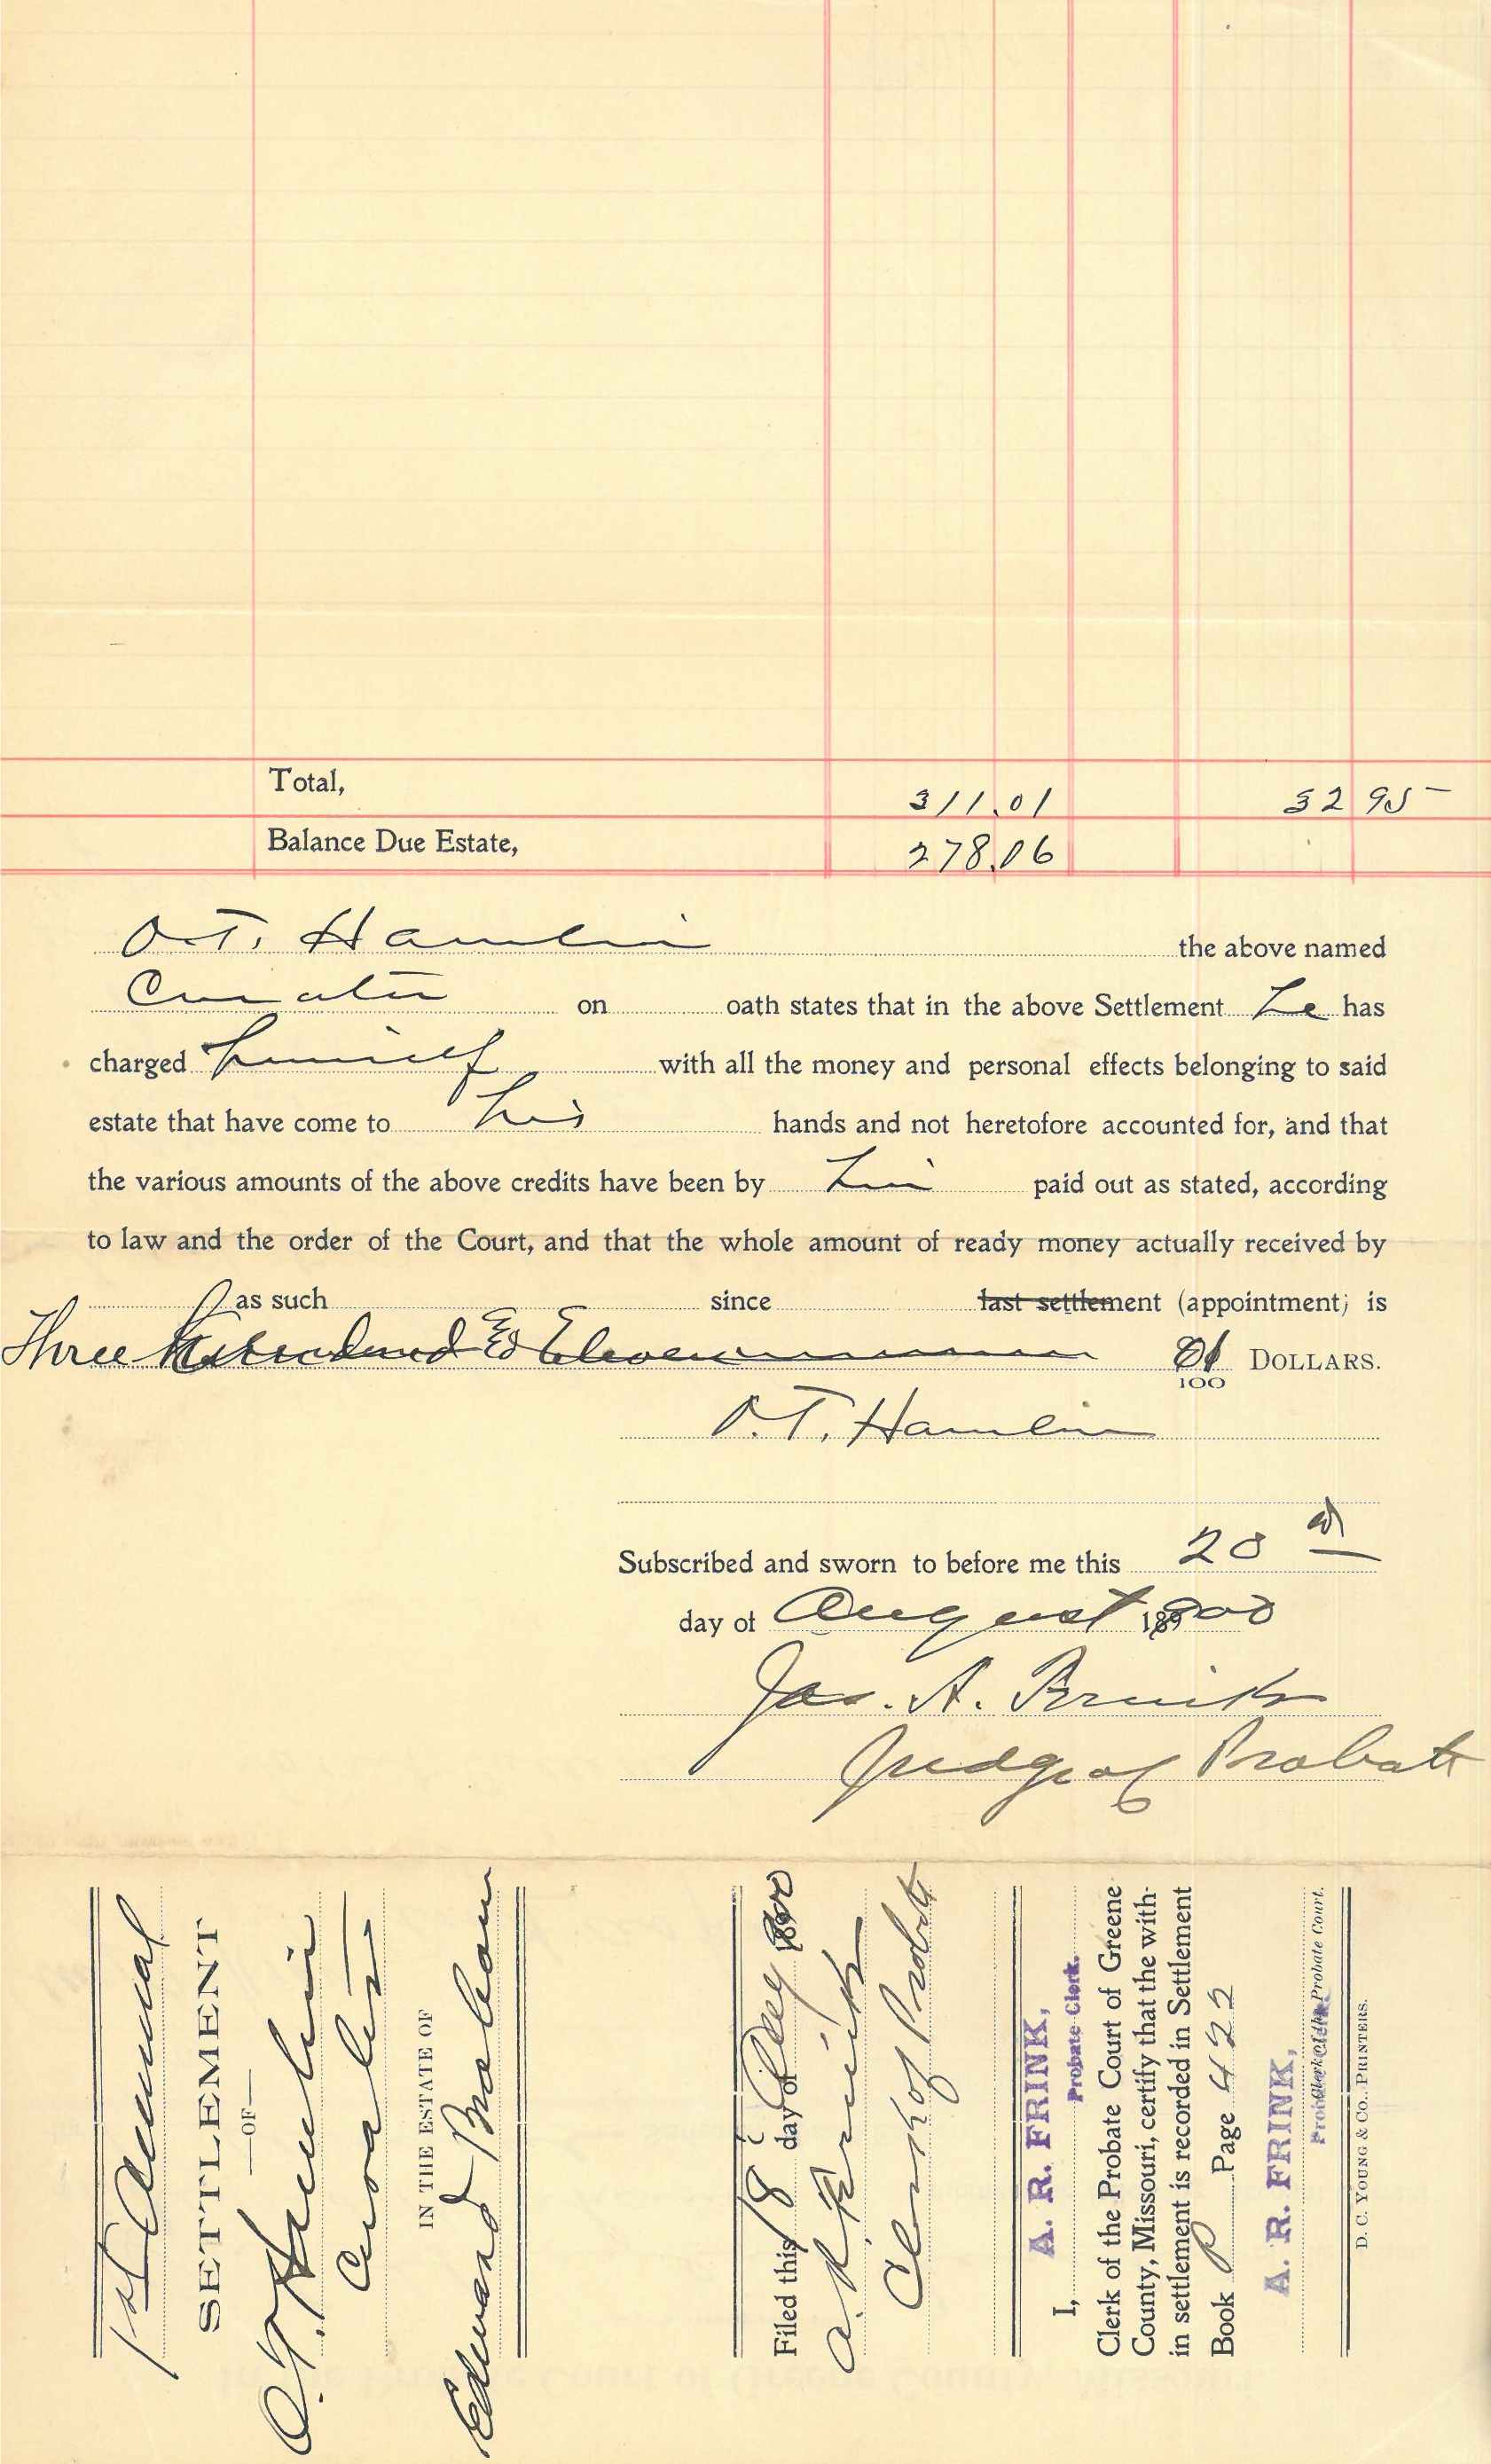 Total, 311.01 32 95
Balance Due Estate, 278.06
O.T. Hamlin the above named
Curator on oath states that in the above Settlement he has
charged himself with all the money and personal effects belonging to said
estate that have come to his hands and not heretofore accounted for, and that
the various amounts of the above credits have been by him paid out as stated, according
to law and the order of the Court, and that the whole amount of ready money actually received by
as such since last settlement (appointment) is
Three Hundred & Eleven 01/100 DOLLARS.
O.T. Hamlin
Subscribed and sworn to before me this 20
day of August 1900
Jas. A. Frink
Judge of Probate
1st Annual
SETTLEMENT
—OF—
O.T. Hamlin
Curator
IN THE ESTATE OF
Edward Braham
Filed this 18 day of Aug 1900
A. R. Frink
Clerk of Probate
I, A. R. FRINK,
Probate Clerk.
Clerk of the Probate Court of Greene
County, Missouri, certify that the with-
in settlement is recorded in Settlement
Book P Page 422
A. R. FRINK,
Clerk of the Probate Court.
D. C. YOUNG & CO., PRINTERS.